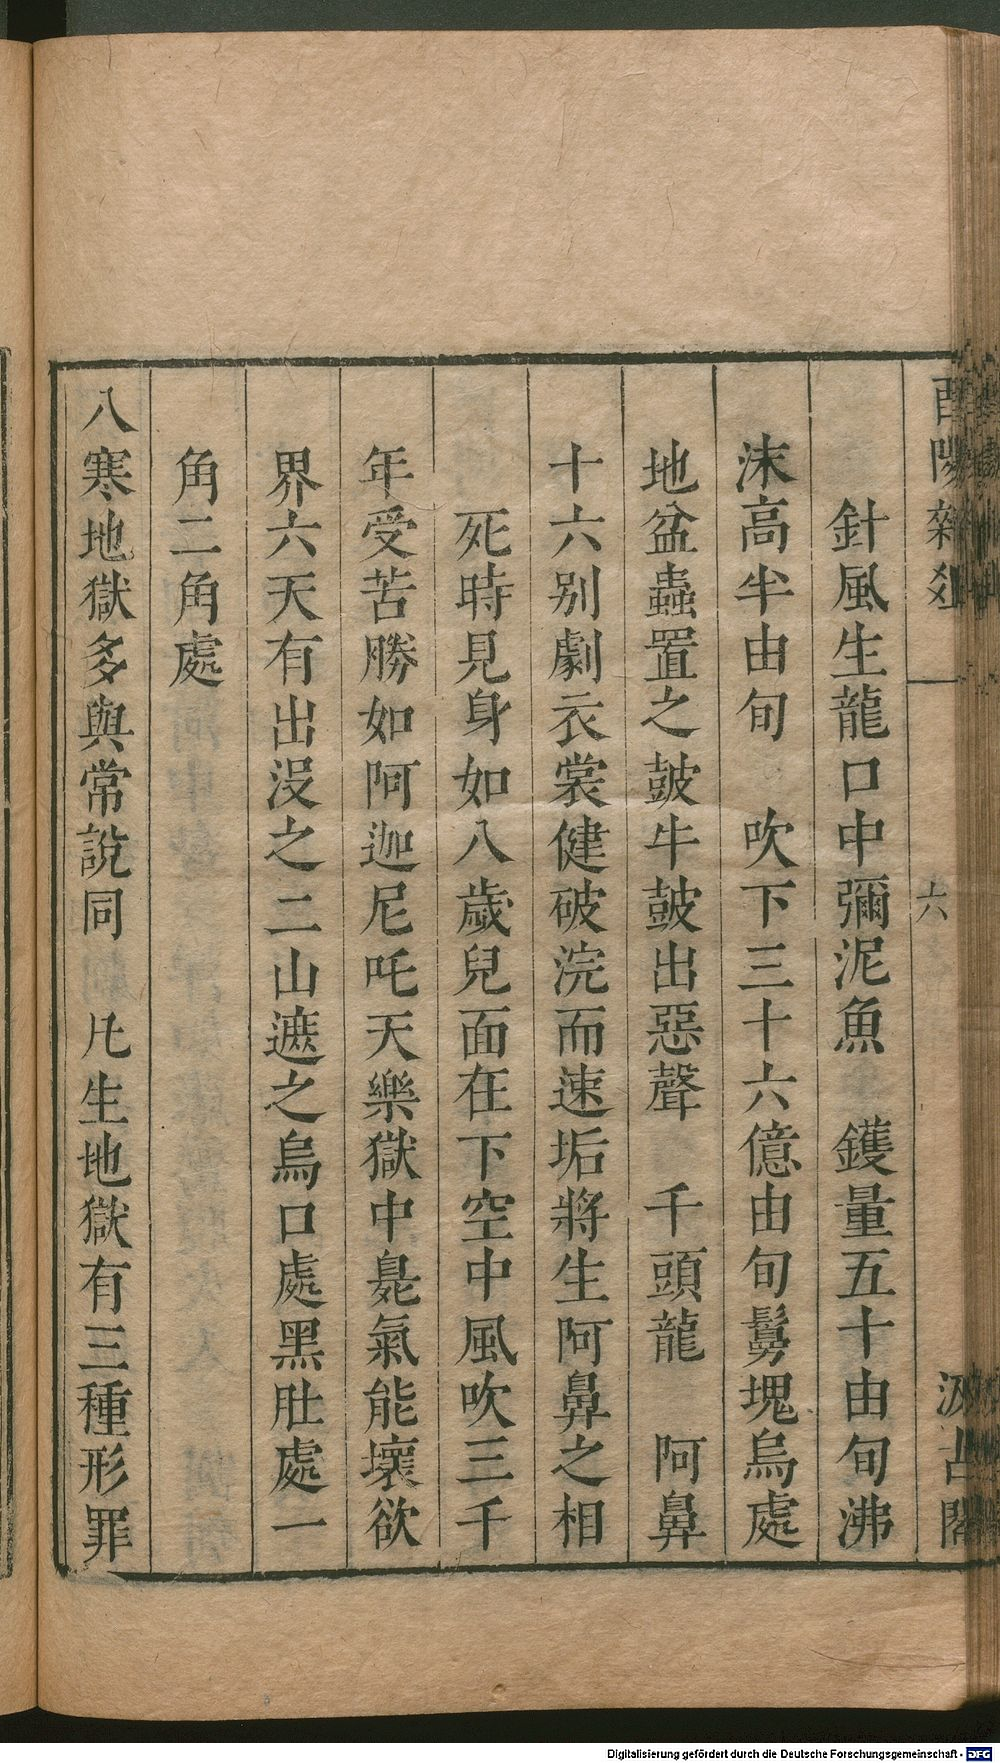 酉陽雜俎
六
汲古閣
針風生龍口中彌泥魚　鑊量五十由旬沸
沫高半由旬　吹下三十六億由旬鬘塊烏處
地盆蟲置之皷牛皷出惡聲　千頭龍　阿鼻
十六别劇衣裳健破浣而速垢將生阿鼻之相
死時見身如八歲兒面在下空中風吹三千
年受苦勝如阿迦尼吒天樂獄中臰氣能壞欲
界六天有出沒之二山遮之烏口處黑肚處一
角二角處
八寒地獄多與常說同　凡生地獄有三種形罪
Digitalisierung gefördert durch die Deutsche Forschungsgemeinschaft - DFG